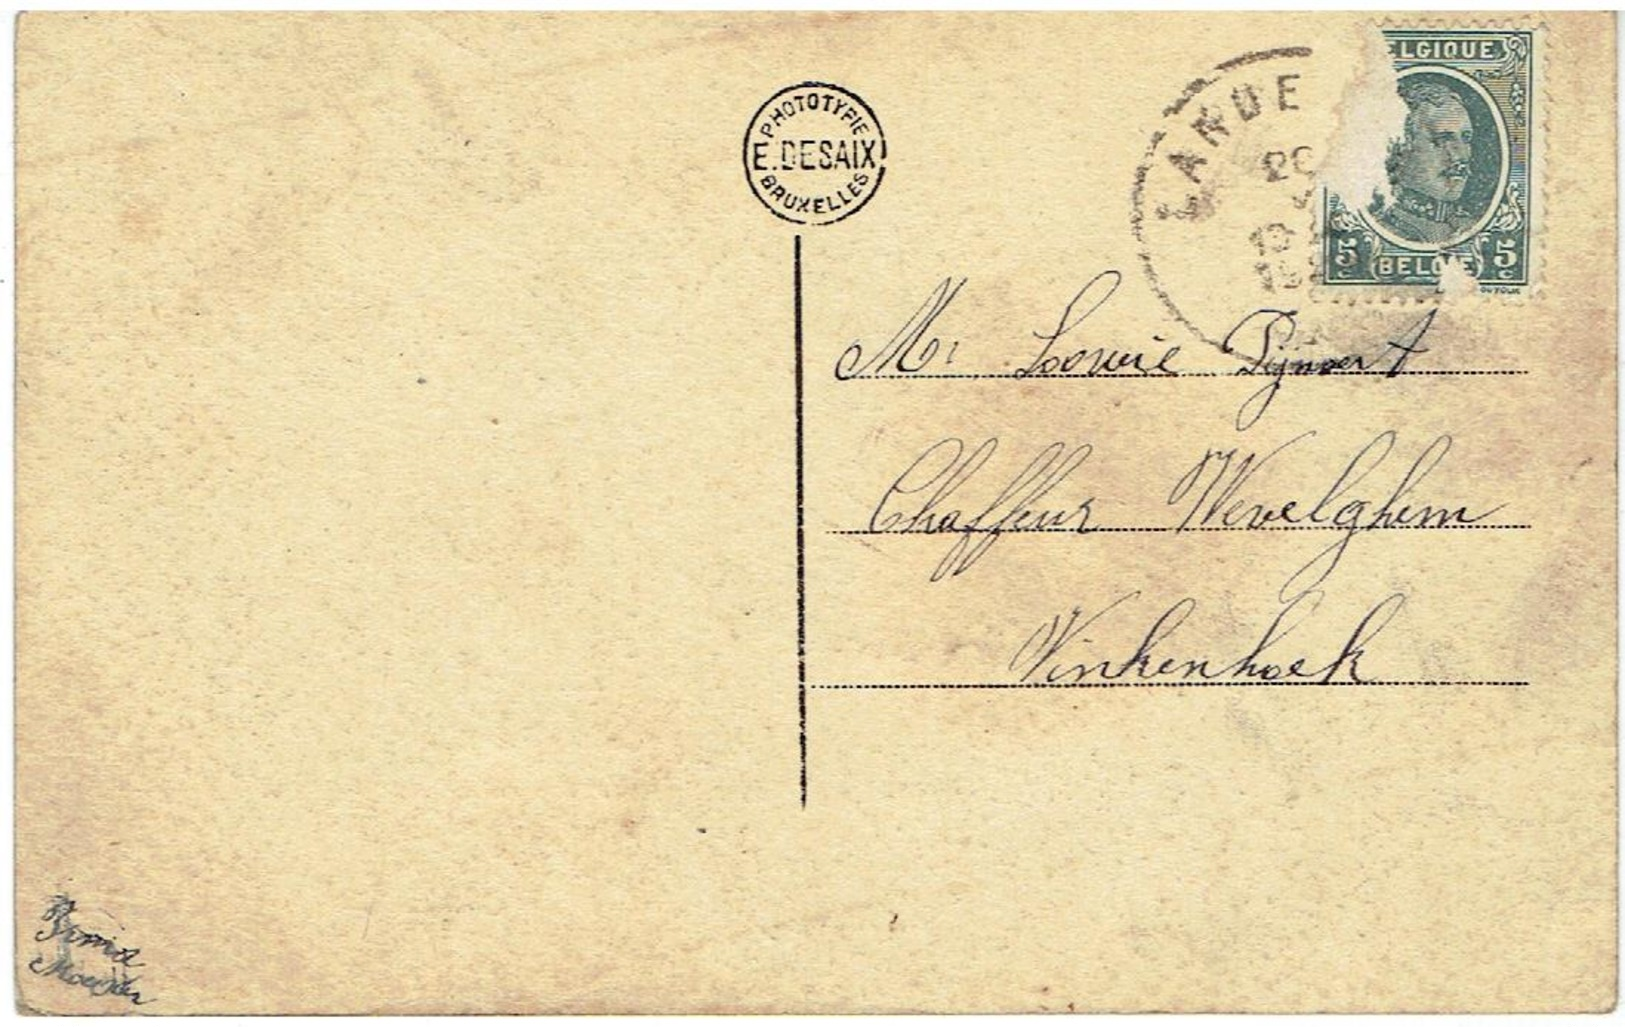 PHOTOTYPIE
E. DESAIX
BRUXELLES
LANDE
ELGIQUE
5c BELGIE 5c
Mr Lowie Pijnaert
Chaffeur Wevelghem
Vinkenhoek